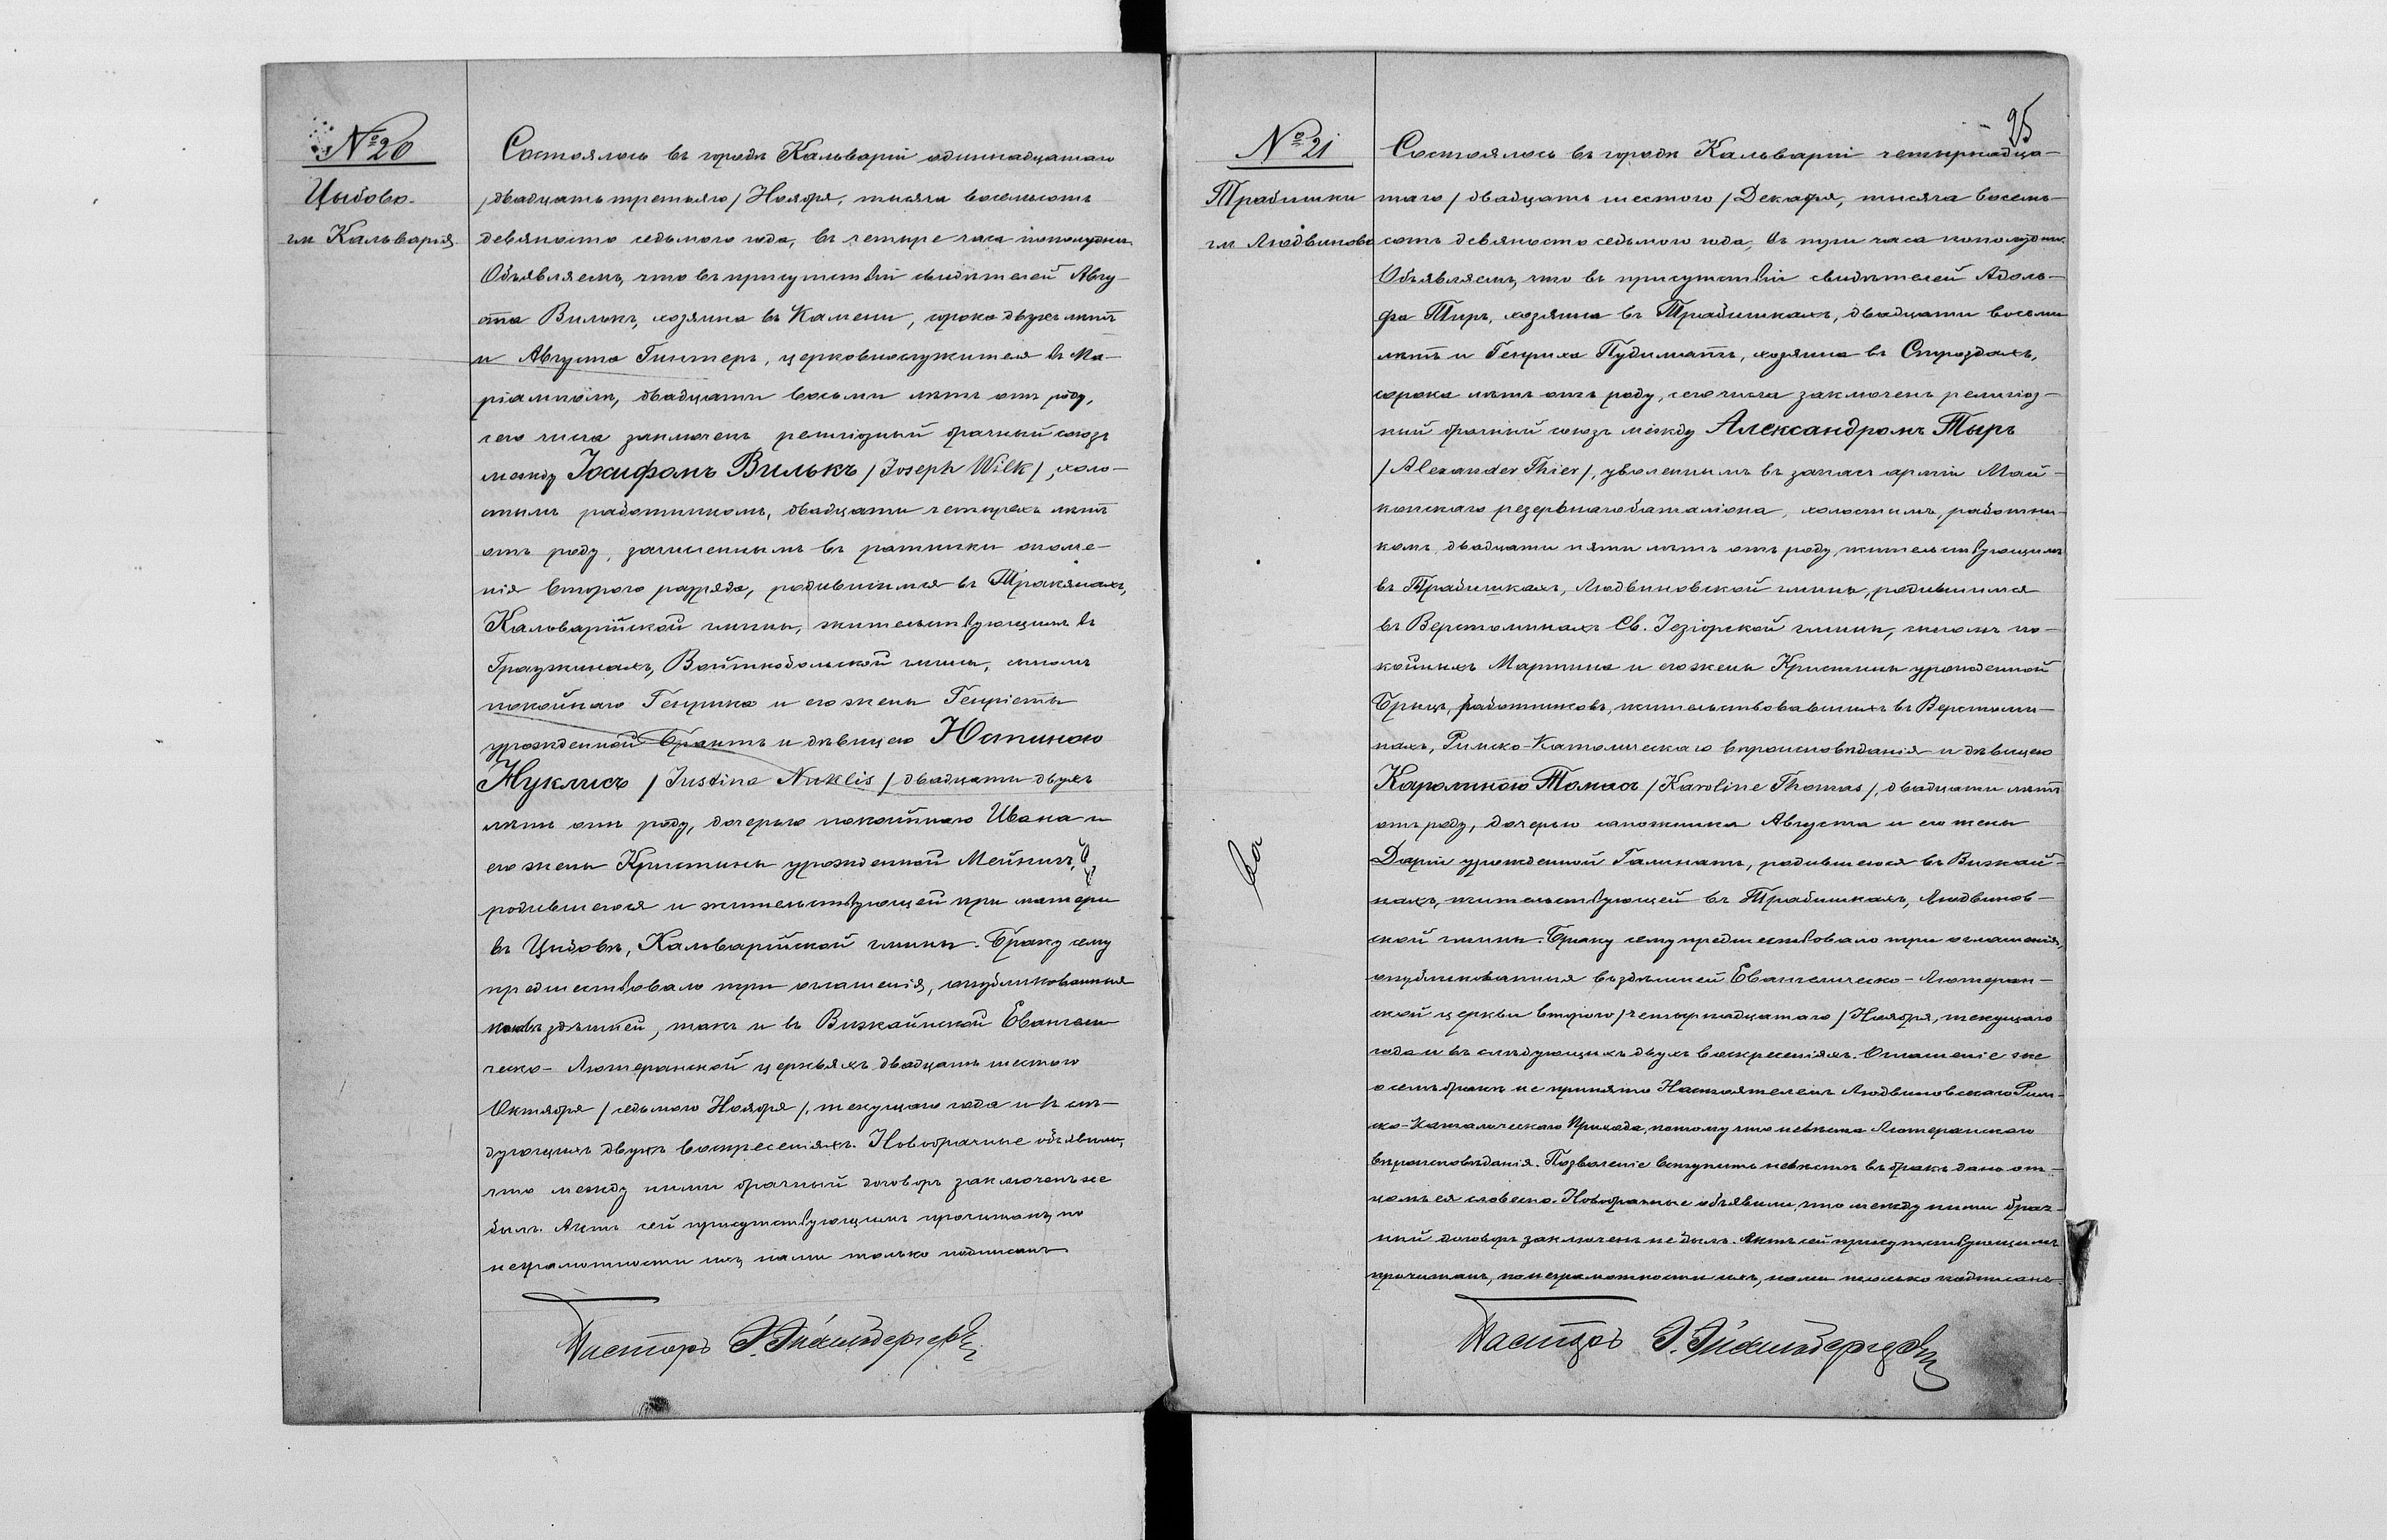 № 20
Цыбово.
гм Кальварія.
Состоялось въ городѣ Кальваріи одиннадцатаго
/двадцать третьяго/ Ноября, тысяча восемьсотъ
девяносто седьмого года, въ четыре часа пополудни.
Объявляемъ, что въ присутствіи свидѣтелей Авгу-
ста Вилькъ, хозяина въ Камени, сорока двухъ лѣтъ
и Августа Гинтеръ, церковнослужителя въ Ма-
ріамполѣ, двадцати восьми лѣтъ отъ роду,
сего числа заключенъ религіозный брачный союзъ
между Іосифомъ Вилькъ /Joseph Wilk/, холо-
стымъ работникомъ, двадцати четырехъ лѣтъ
отъ роду, зачисленнымъ въ ратники ополче-
нія второго разряда, родившимся въ Тракянахъ,
Кальварійской гмины, жительствующимъ въ
Гражинахъ, Войткобольской гмины, сыномъ
покойнаго Генрика и его жены Генріеты
урожденной Брантъ и дѣвицею Юстиною
Нуклисъ /Justine Nuklis/ двадцати двухъ
лѣтъ отъ роду, дочерью покойнаго Ивана и
его жены Кристины урожденной Мейнисъ,
родившеюся и жительствующей при матери
въ Цыбовѣ, Кальварійской гмины. Браку сему
предшествовало три оглашенія, опубликованныя
какъ въ здѣшней, такъ и въ Вижайнской Евангели-
ческо-Лютеранской церквяхъ двадцать шестого
Октября /седьмого Ноября/, текущаго года и въ слѣ-
дующихъ двухъ воскресеніяхъ. Новобрачные объявили,
что между ними брачный договоръ заключенъ не
былъ. Актъ сей присутствующимъ прочитанъ, по
неграмотности ихъ, нами только подписанъ.
Пасторъ
25
№ 21
Трабишки
гм Людвиново
Состоялось въ городѣ Кальваріи четырнадца-
таго /двадцать шестого/ Декабря, тысяча восемь-
сотъ девяносто седьмого года, въ три часа пополудни.
Объявляемъ, что въ присутствіи свидѣтелей Адоль-
фа Тиръ, хозяина въ Трабишкахъ, двадцати восьми
лѣтъ и Генриха Пудиматъ, хозяина въ Строздахъ,
сорока лѣтъ отъ роду, сего числа заключенъ религіоз-
ный брачный союзъ между Александромъ Тыръ
/Alexander Thier/, уволеннымъ въ запасъ арміи Май-
копскаго резервнаго баталіона, холостымъ, работни-
комъ, двадцати пяти лѣтъ отъ роду, жительствующимъ
въ Трабишкахъ, Людвиновской гмины, родившимся
въ Верстоминахъ Св. Језіорской гмины, сыномъ по-
койныхъ Мартина и его жены Кристины урожденной
Брыцъ, работниковъ, жительствовавшихъ въ Верстоми-
нахъ, Римско-Католическаго вѣроисповѣданія и дѣвицею
Каролиною Томасъ /Karoline Thomas/, двадцати лѣтъ
отъ роду, дочерью сапожника Августа и его жены
Дарьи урожденной Галинатъ, родившеюся въ Вижай-
нахъ, жительствующей въ Трабишкахъ, Людвинов-
ской гмины. Браку сему предшествовало три оглашенія,
опубликованныя въ здѣшней Евангелическо-Лютеран-
ской церкви второго /четырнадцатаго/ Ноября, текущаго
года и въ слѣдующихъ двухъ воскресеніяхъ. Оглашеніе же
о семъ бракѣ не принято Настоятелемъ Людвиновскаго Рим-
ско-Католическаго Прихода, потому что невѣста Лютеранскаго
вѣроисповѣданія. Позволеніе вступить невѣстѣ въ бракъ дано от-
цомъ ея словесно. Новобрачные объявили, что между ними брач-
ный договоръ заключенъ не былъ. Актъ сей присутствующимъ
прочитанъ, по неграмотности ихъ, нами только подписанъ.
Пасторъ